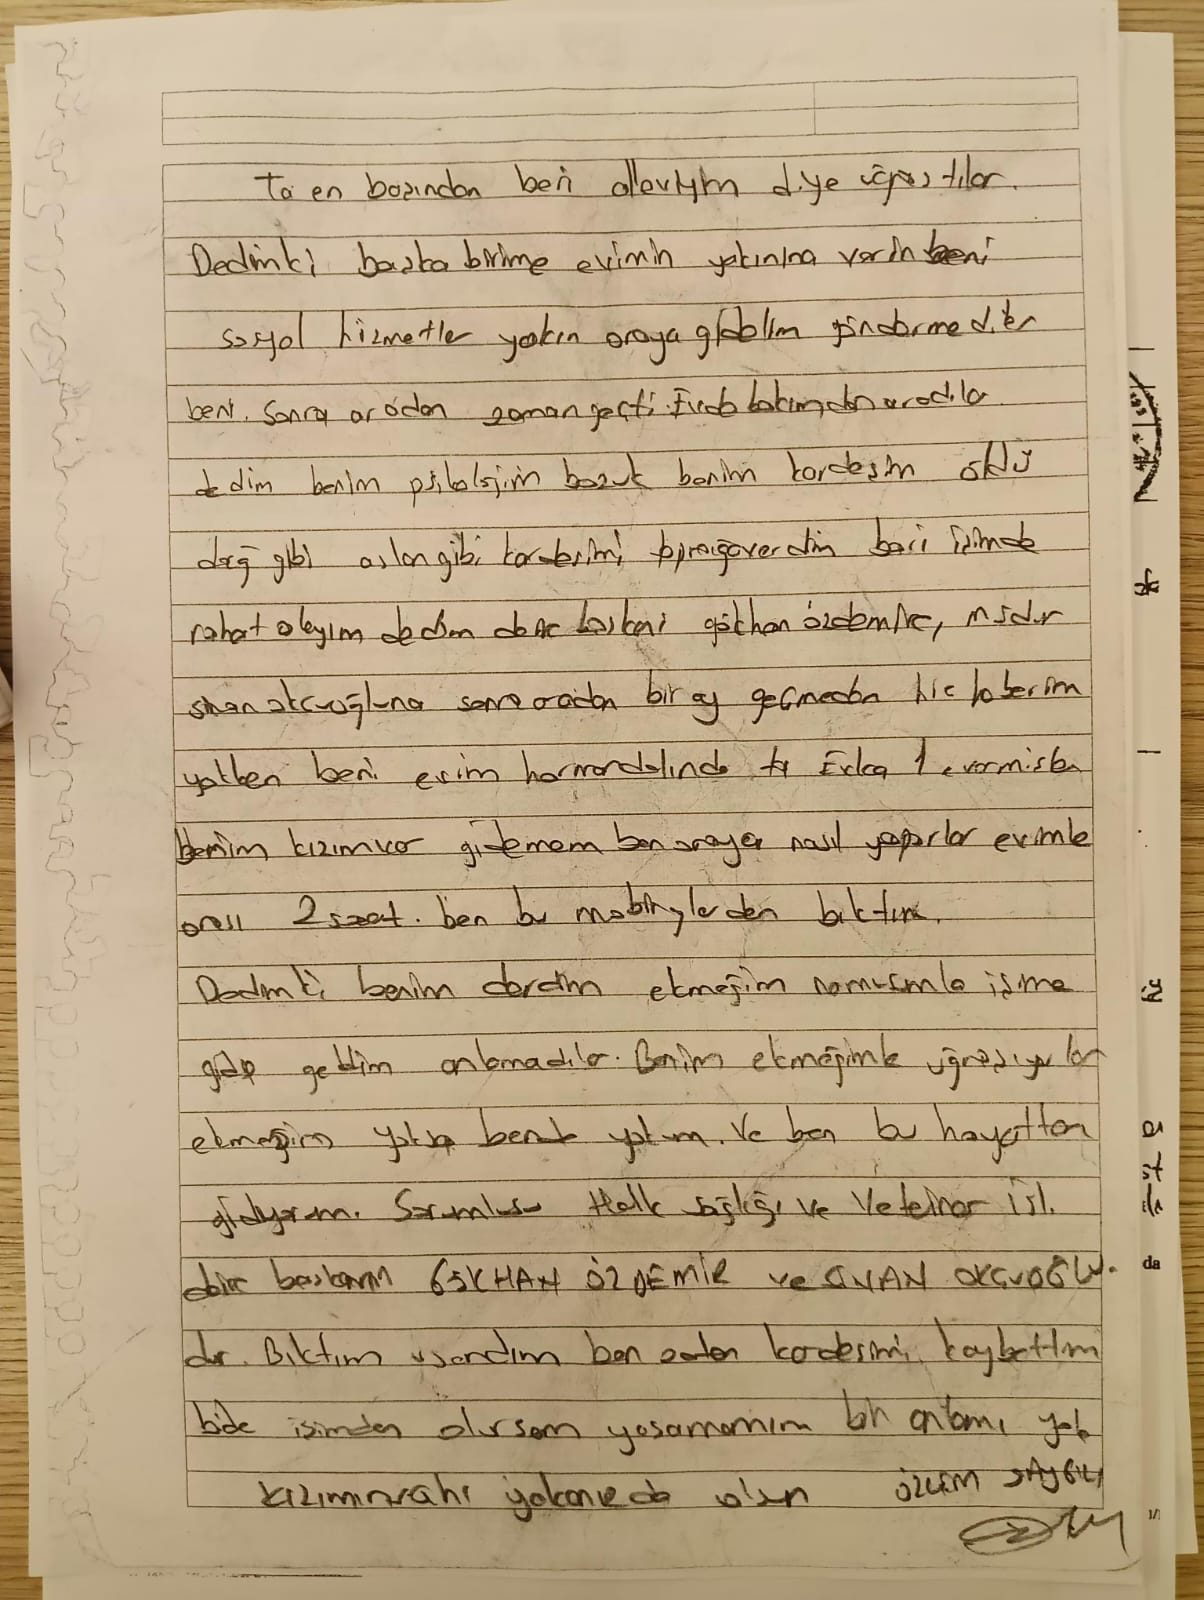 Ta en başından beri alleviyim diye uğraştılar.
Dedimki başka birime evimin yakınına verin beni
sosyal hizmetler yakın oraya gidelim göndermediler
beni. Sonra aradan zaman geçti Evde bakımdan aradılar
dedim benim psikolojim bozuk benim kardeşim öldü
dağ gibi aslan gibi kardeşimi toprağa verdim bari işimde
rahat olayım dedim daire başkanı gökhan özdemire, müdür
sinan akçuoğluna sonra aradan bir ay geçmeden hiç haberim
yokken beni evim harmandalında ta Evka 1 e vermişler
benim kızım var gidemem ben oraya nasıl yaparlar evimle
arası 2 saat. ben bu mobinglerden bıktım.
Dedimki benim derdim ekmeğim namusumla işime
gidip geldim anlamadılar. Benim ekmeğimle uğraşıyorlar
ekmeğim yoksa bende yokum. Ve ben bu hayattan
gidiyorum. Sorumlusu Halk sağlığı ve Veteiner işl.
daire başkanım GÖKHAN ÖZDEMİR ve SİNAN OKÇUOĞLU.
dur. Bıktım usandım ben zaten kardeşimi kaybettim
bide işimden olursam yaşamamım bir anlamı yok
kızımın ahı yakanızda olsun ÖZLEM SAYGILI